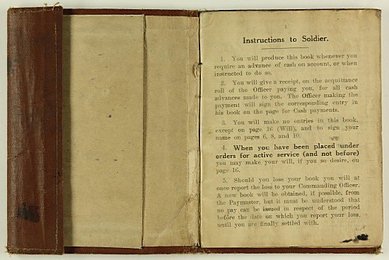 Instructions to Soldier.
1. You will produce this book whenever you
require an advance of cash on account, or when
instructed to do so.
2. You will give a receipt, on the acquittance
roll of the Officer paying you, for all cash
advances made to you. The Officer making the
payment will sign the corresponding entry in
his book on the page for Cash payments.
3. You will make no entries in this book,
except on page 16 (Will), and to sign your
name on pages 6, 8, and 10.
4. When you have been placed under
orders for active service (and not before)
you may make your will, if you so desire, on
page 16.
5. Should you lose your book you will at
once report the loss to your Commanding Officer.
A new book will be obtained, if possible, from
the Paymaster, but it must be understood that
no pay can be issued in respect of the period
before the date on which you report your loss,
until you are finally settled with.